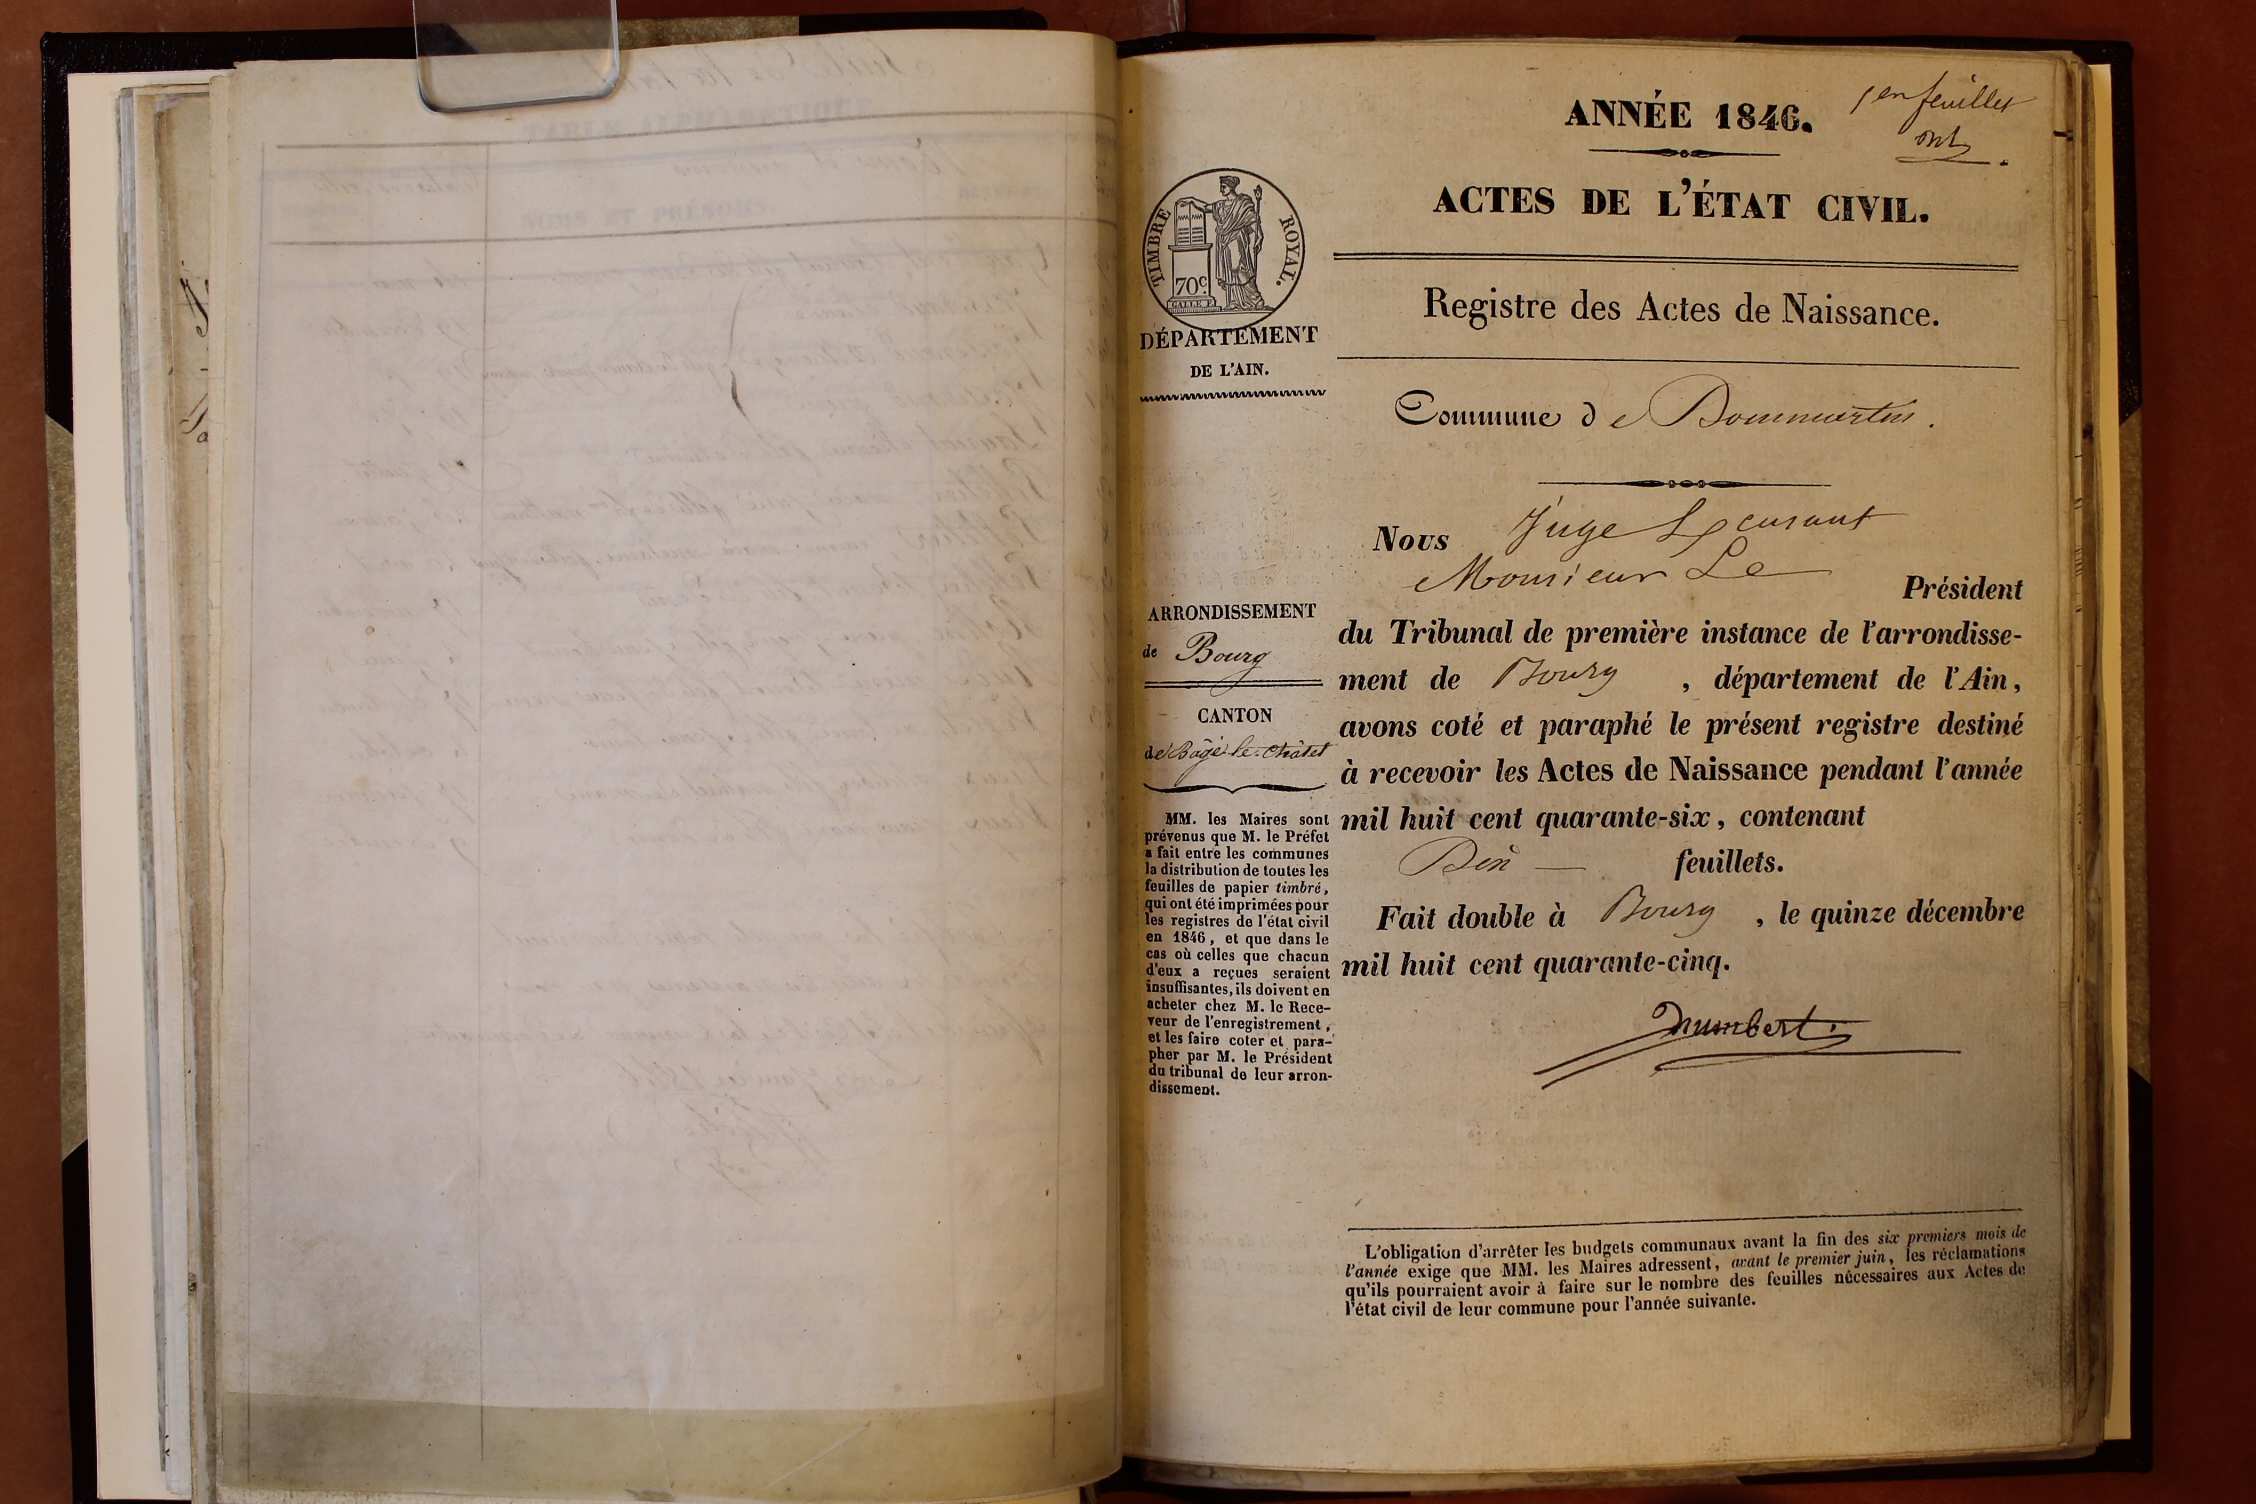 ANNÉE 1846.
1er feuillet
ACTES DE L'ÉTAT CIVIL.
TIMBRE ROYAL.
70c.
DÉPARTEMENT
DE L'AIN.
Registre des Actes de Naissance.
Commune de Dommartin.
ARRONDISSEMENT
de Bourg
CANTON
de Bâgé-le-Châtel
MM. les Maires sont
prévenus que M. le Préfet
a fait entre les communes
la distribution de toutes les
feuilles de papier timbré,
qui ont été imprimées pour
les registres de l'état civil
en 1846, et que dans le
cas où celles que chacun
d'eux a reçues seraient
insuffisantes, ils doivent en
acheter chez M. le Rece-
veur de l'enregistrement,
et les faire coter et para-
pher par M. le Président
du tribunal de leur arron-
dissement.
Nous Juge
Monsieur Le Président
du Tribunal de première instance de l'arrondisse-
ment de Bourg, département de l'Ain,
avons coté et paraphé le présent registre destiné
à recevoir les Actes de Naissance pendant l'année
mil huit cent quarante-six, contenant
Dix feuillets.
Fait double à Bourg, le quinze décembre
mil huit cent quarante-cinq.
L'obligation d'arrêter les budgets communaux avant la fin des six premiers mois de
l'année exige que MM. les Maires adressent, avant le premier juin, les réclamations
qu'ils pourraient avoir à faire sur le nombre des feuilles nécessaires aux Actes de
l'état civil de leur commune pour l'année suivante.